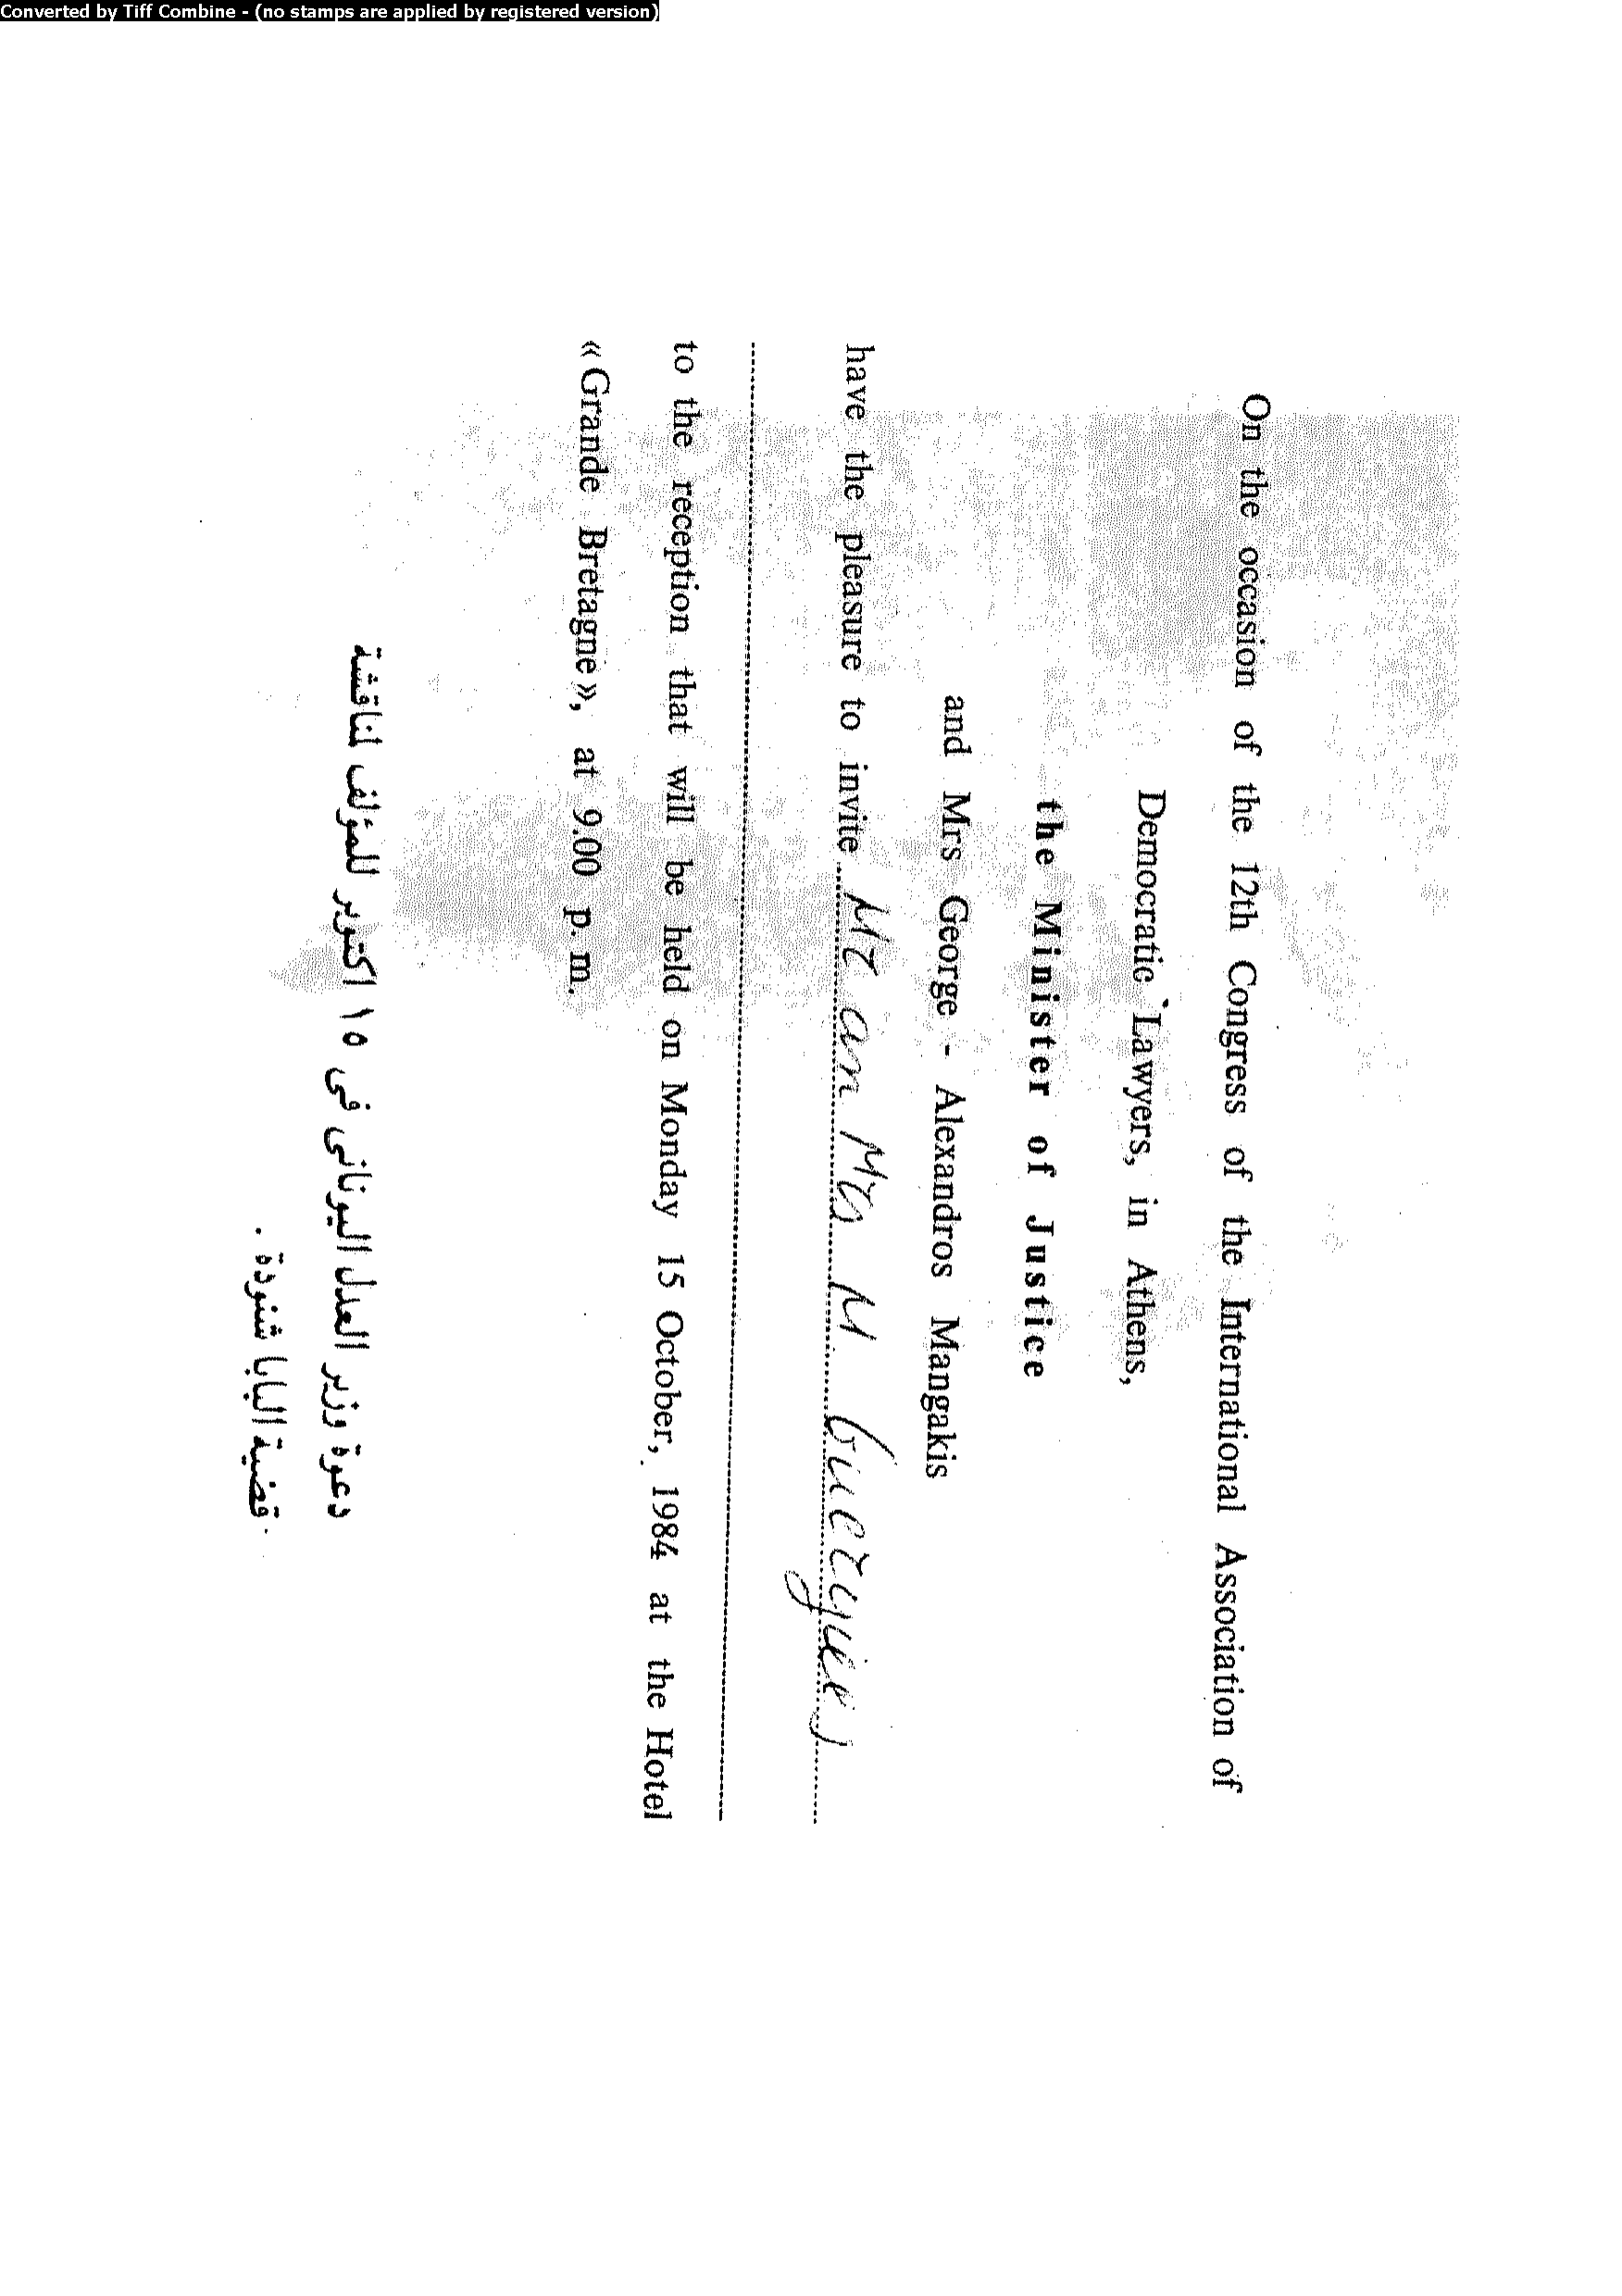 Converted by Tiff Combine - (no stamps are applied by registered version)
On the occasion of the 12th Congress of the International Association of
Democratic Lawyers, in Athens,
the Minister of Justice
and Mrs George - Alexandros Mangakis
have the pleasure to invite Mr an Mrs M.
to the reception that will be held on Monday 15 October, 1984 at the Hotel
«Grande Bretagne», at 9.00 p. m.
دعوة وزير العدل اليونانى فى ١٥ اكتوبر للمؤلف لمناقشة
قضية البابا شنودة .